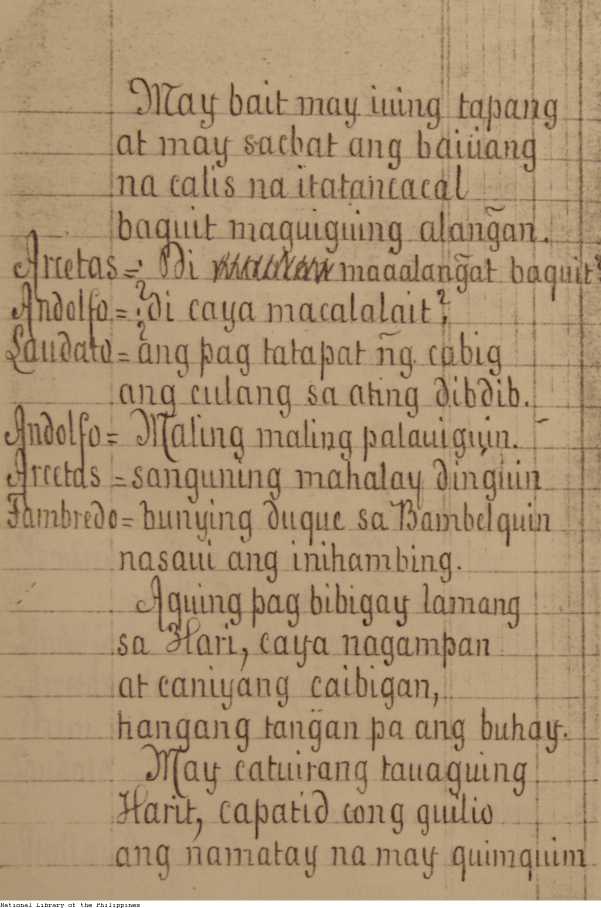 May bait may iuing tapang
at may sacbat ang baiuang
na calis na itatancacal
baquit maguiguing alang̃an.
Arcetas=: Di maaalang̃at baquit?
Andolfo=¿di caya macalalait?,
Laudato=¿ang pag tatapat ñg cabig
ang culang sa ating dibdib.
Andolfo= Maling maling palauiguin.
Arcetas=sanguning mahalay dinguin
Fambredo=bunying duque sa Bambelquin
nasaui ang inihambing.
Aquing pag bibigay lamang
sa Hari, caya nagampan
at caniyang caibigan,
hangang tang̃an pa ang buhay.
May catuirang tauaguing
Harit, capatid cong guilio
ang namatay na may quimquim
National Library of the Philippines